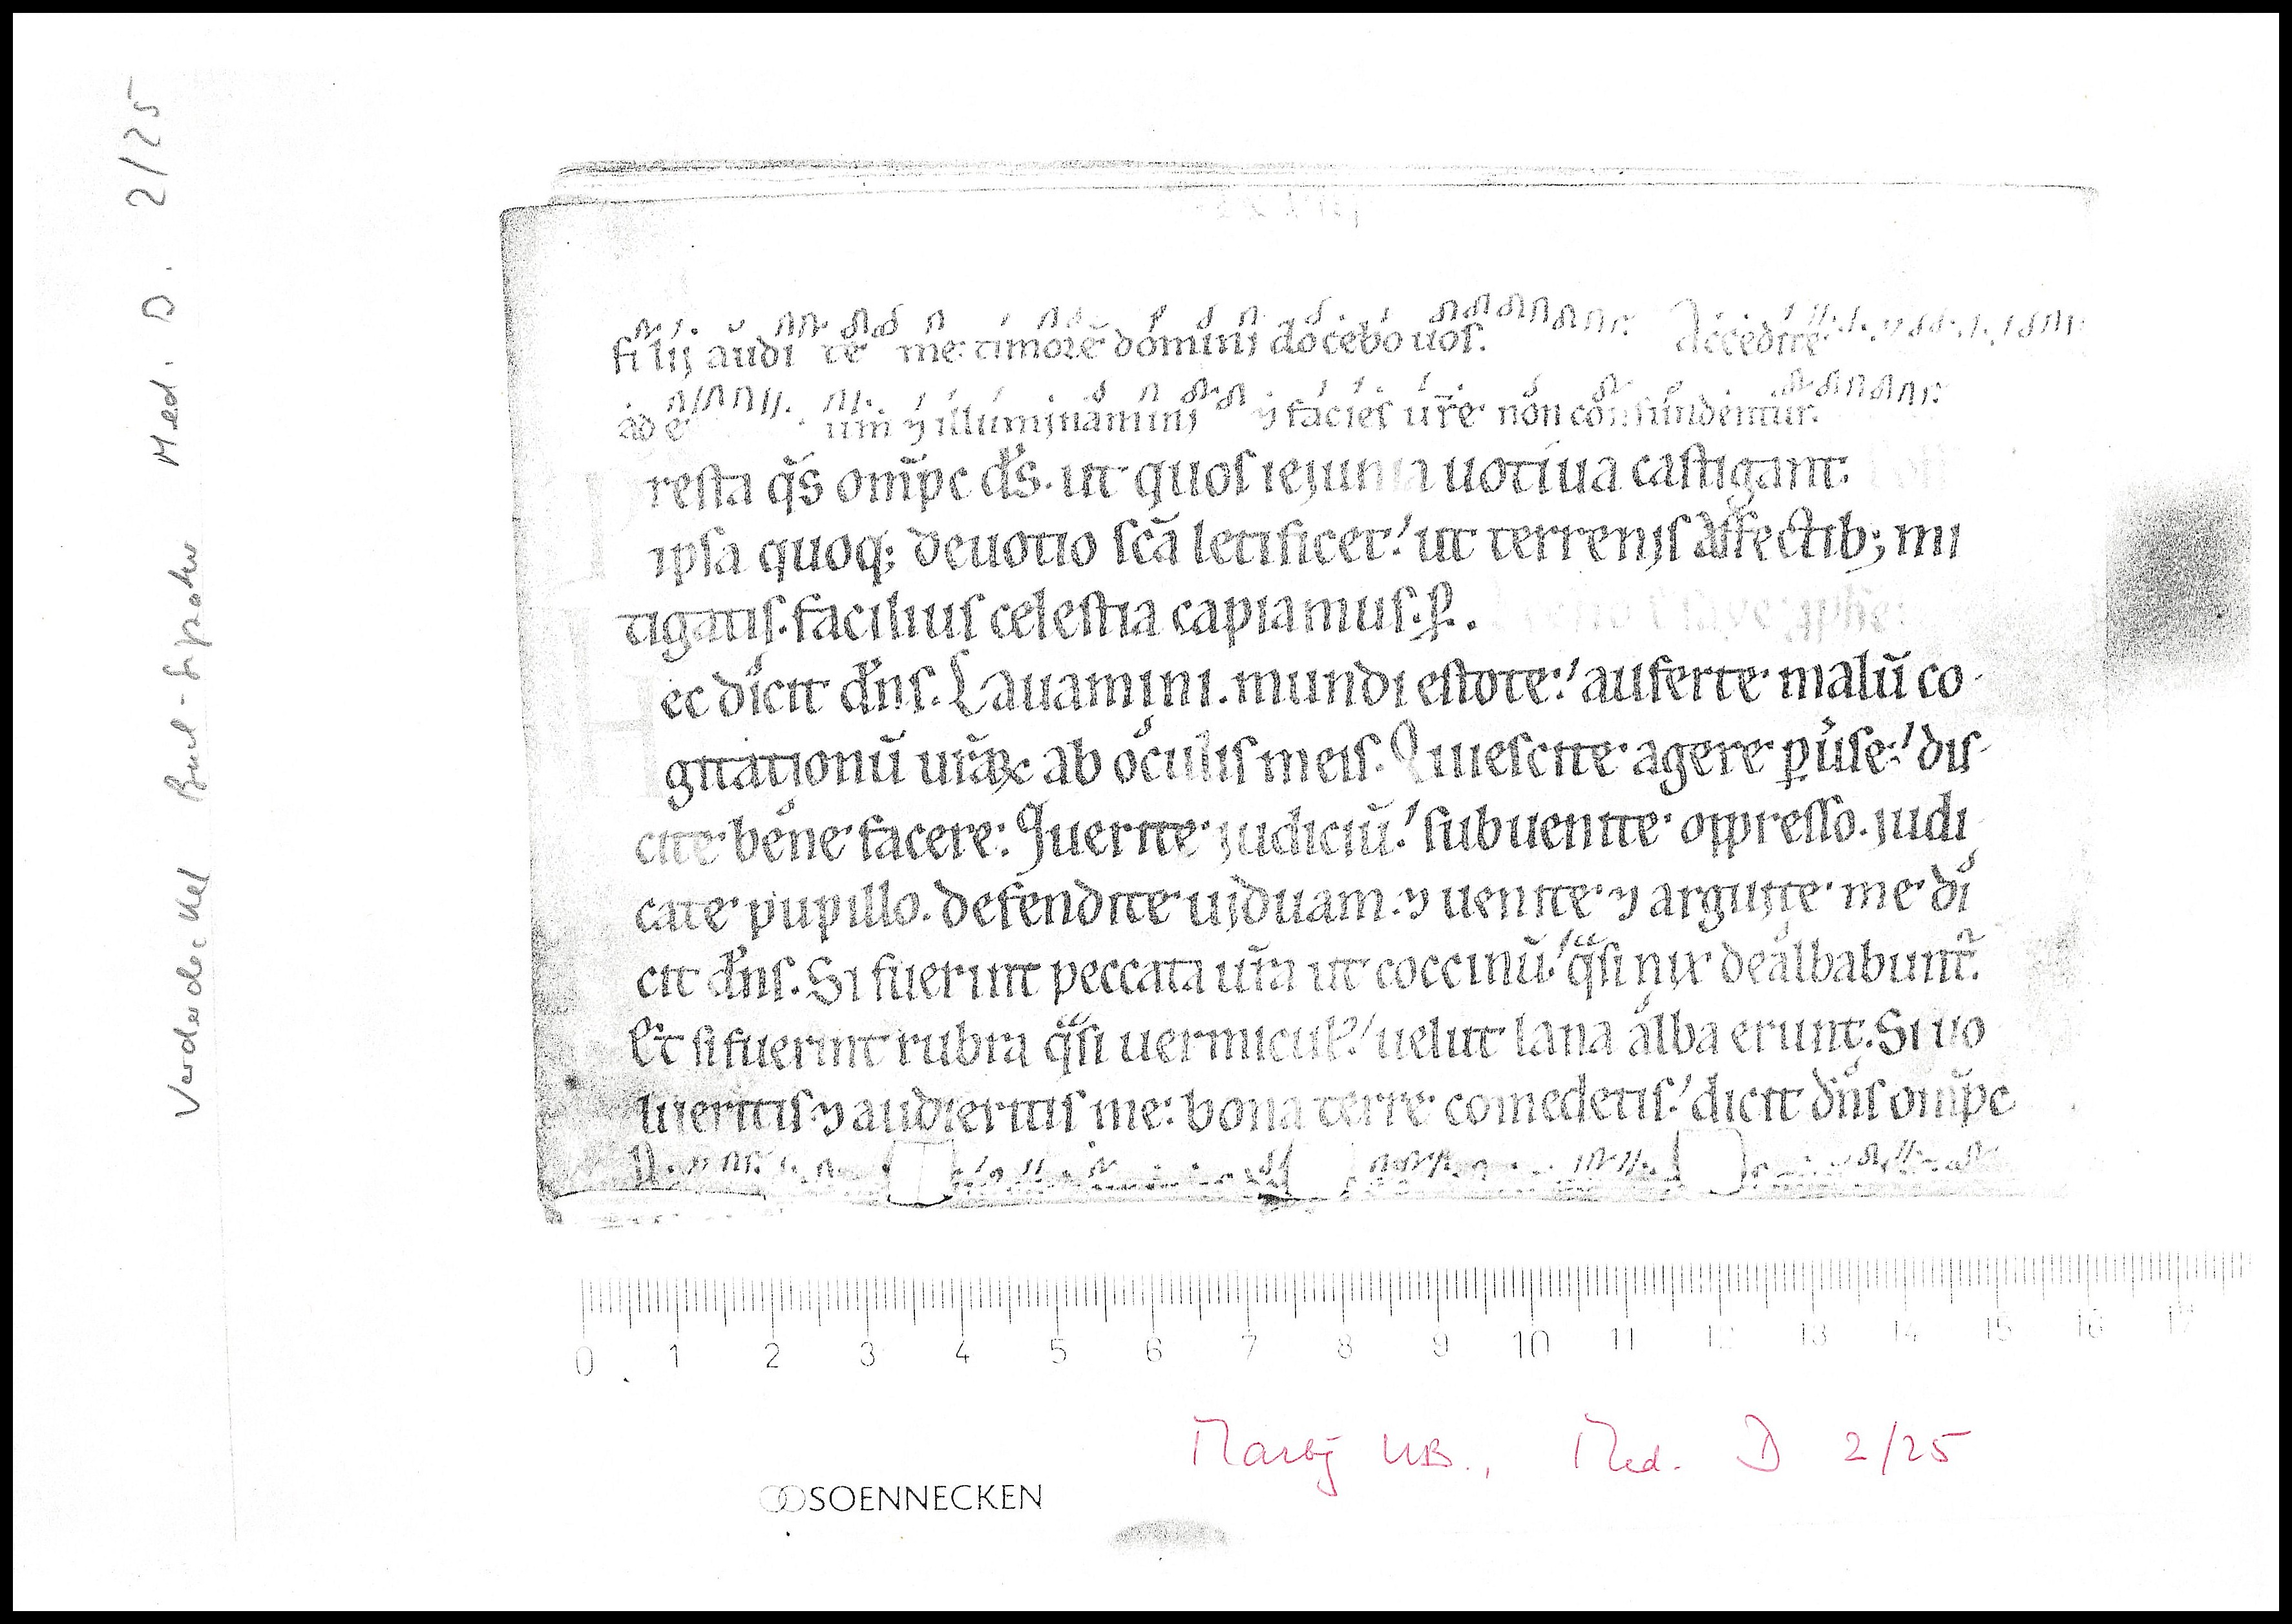 filij audi te me: timorē domini docebo uos. Accedite
ad e um ⁊ illuminamini ⁊ facies ur̄e non confundentur.
resta q̄s om̄pc ds̄. ut quos ieiunia uotiua castigant:
ipsa quoq; deuotio sc̄a letificet! ut terrenis affectib; mi
tigatis. facilius celestia capiamus. ꝑ.
ec dicit dn̄s. Lauamini. mundi estote:! auferte malū co
gitationū ur̄aꝝ ab oculis meis. Quiescite agere ꝑuse:! dis
cite bene facere: Querite judiciū.! subuenite oppresso. judi
cate pupillo. defendite uiduam. ⁊ uenite ⁊ arguite me di
cit dn̄s. Si fuerint peccata ur̄a ut coccinū.! q̄si nix dealbabunt̄.
Et si fuerint rubra q̄si uermicul!' uelut lana alba erunt. Si uo
lueritis ⁊ audieritis me: bona terre comedetis!' dicit dn̄s om̄pc
0 1 2 3 4 5 6 7 8 9 10 11 12 13 14 15 16 17
SOENNECKEN
Marbg UB., Med. D 2/25
Vorderdeckel Buch-Spiegel Med. D. 2/25